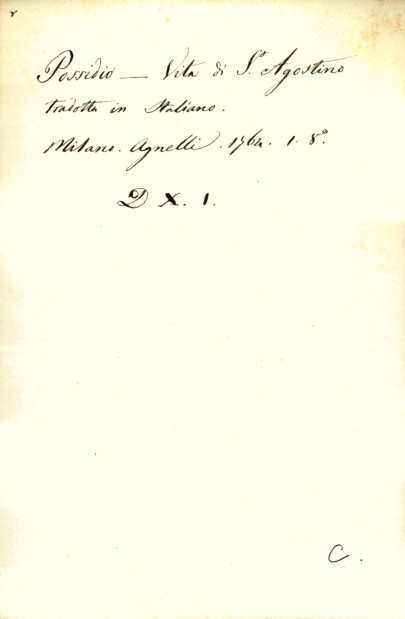 Possidio — Vita di S.to Agostino
tradotta in Italiano.
Milano. Agnelli. 1764. 1. 8°.
D X. 1.
C.